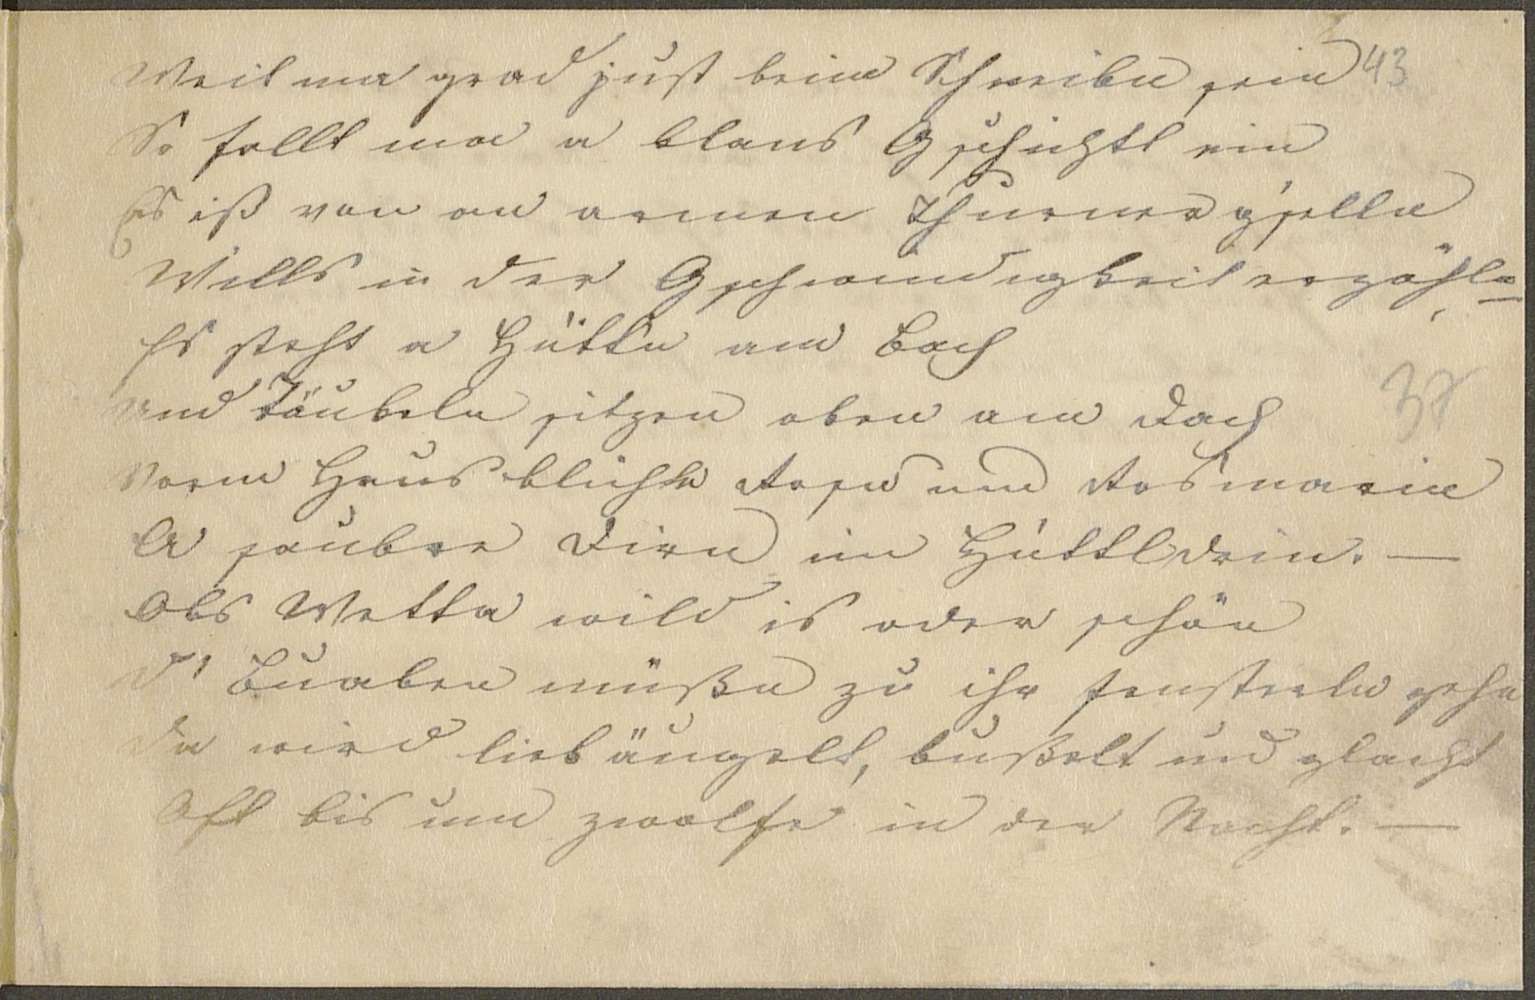 Weil ma grad just beim Schreibn sein 43
So fallt ma a klans Gschichtl ein
Es iß von an armen Thurnergselln
Wills in der Gschwindigkeit erzähln
Es steht a Hüttn am Bach
und Täubeln sitzen oben am Dach
Vorm Haus blühn Rosn und Rosmarin
A saubre Dirn im Hüttl drin. —
Obs Wetta wild is oder schön
D' Buaben müßn zu ihr fensterln gehn
Da wird liebäugelt, bußelt und glacht
Oft bis um zwölfe in der Nacht. —